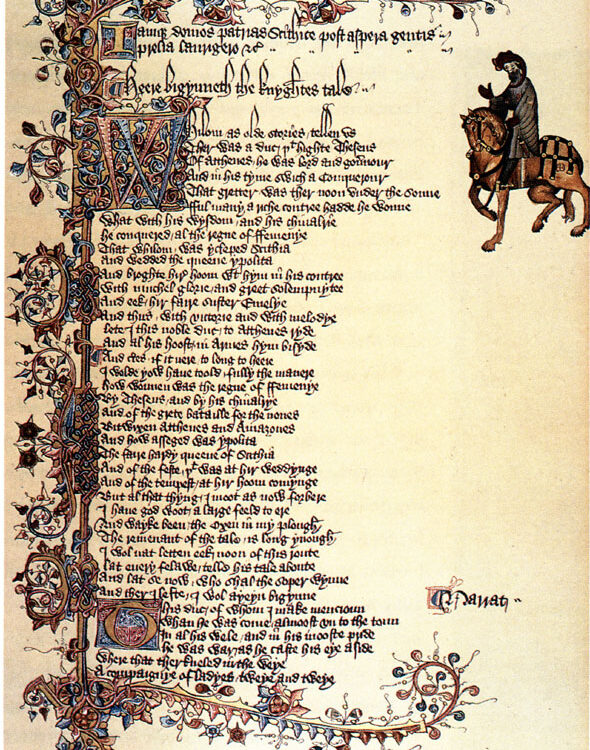 Iamque domos patrias Scithice post aspera gentis
prelia laurigero &c
Heere bigynneth the knyghtes tale
Whilom as olde stories tellen us
Ther was a duc þt highte Theseus
Of Atthenes he was lord and gouernour
And in his tyme swich a Conquerour
That gretter was ther noon under the sonne
fful many a riche contree hadde he wonne
What with his wysdom and his chiualrie
he conquered al the regne of ffemenye
That whilom was ycleped Scithia
And wedded the queene ypolita
And broghte hir hoom wt hym in his contree
With muchel glorie and greet solempnytee
And eek hir faire suster Emelye
And thus with victorie and with melodye
lete I this noble duc to Atthenes ryde
And al his hoost in Armes hym bisyde
And certes if it nere to long to heere
I wolde yow haue toold fully the manere
how wonnen was the regne of ffemenye
By Theseus and by his chiualrye
And of the grete bataille for the nones
Bitwixen Atthenes and Amazones
And how asseged was ypolita
The faire hardy queene of Scithia
And of the feste þt was at hir weddynge
And of the tempest at hir hoom comynge
But al that thyng I moot as now forbere
I haue god woot a large feeld to ere
And wayke been the Oxen in my plough
The remenant of the tale is long ynough
I wol nat letten eek noon of this route
lat euery felawe telle his tale aboute
And lat se now who shal the soper wynne
And ther I lefte I wol ayeyn bigynne
This duc of whom I make mencioun
Narrat
Whan he was come almoost vn to the toun
In al his wele and in his mooste pride
he was war as he caste his eye aside
Where that ther kneled in the weye
A compaignye of ladyes tweye and tweye